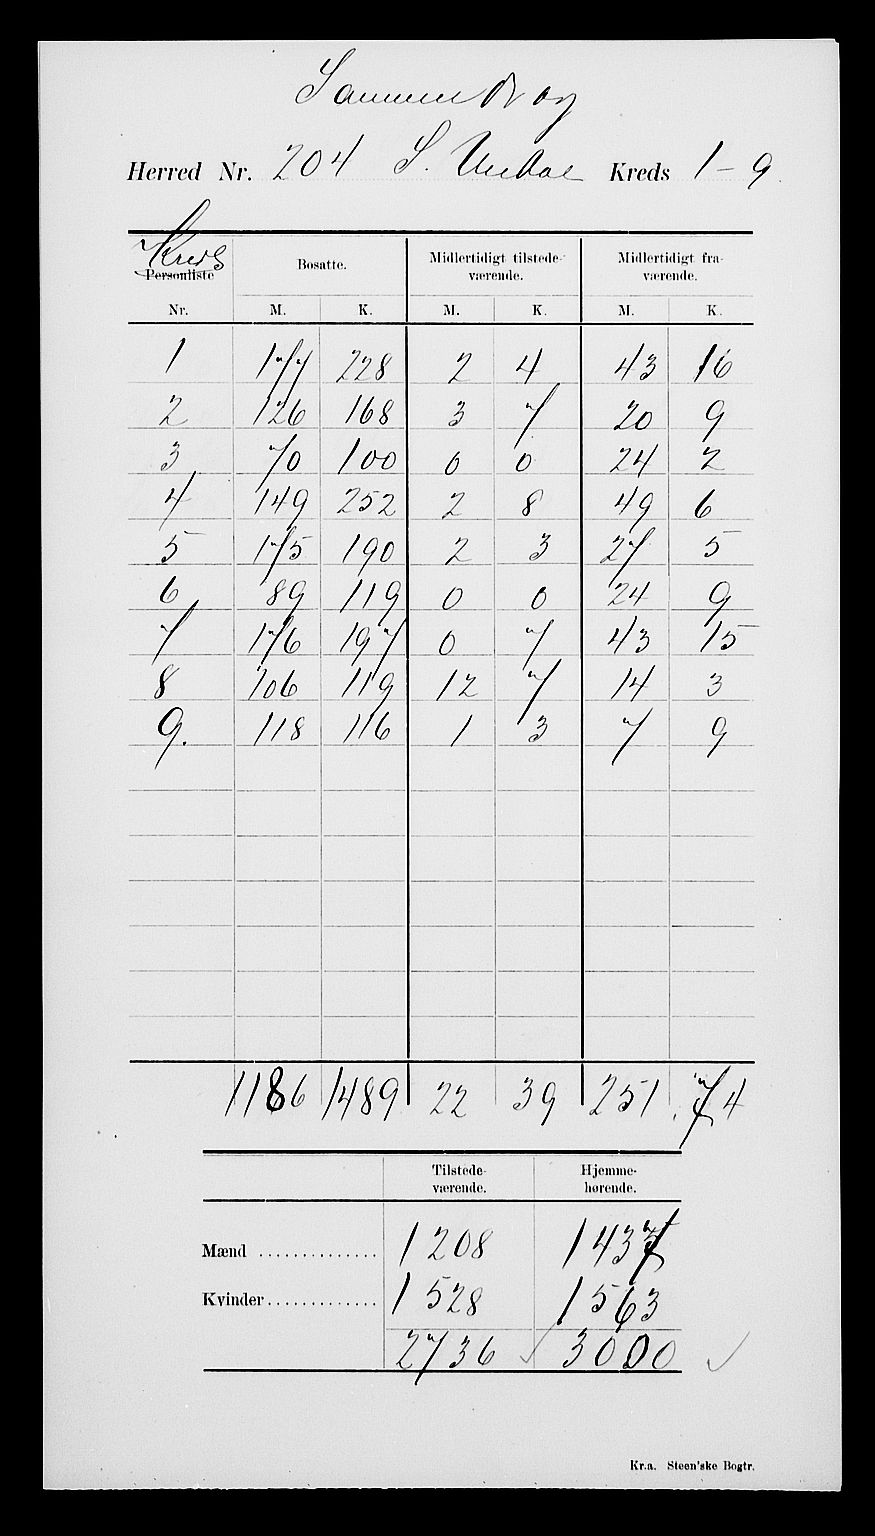 Sammendrag
Herred Nr. 204 S. Undal Kreds 1-9.
Kreds
Personliste Bosatte. Midlertidigt tilstede- Midlertidigt fra-
værende. værende.
Nr. M. K. M. K. M. K.
1 177 228 2 4 43 16
2 126 168 3 7 20 9
3 70 100 0 0 24 2
4 149 252 2 8 49 6
5 175 190 2 3 27 5
6 89 119 0 0 24 9
7 176 197 0 7 43 15
8 106 119 12 7 14 3
9. 118 116 1 3 7 9
1186 1489 22 39 251 74
Tilstede- Hjemme-
værende. hørende.
Mænd .............. 1208 1437
Kvinder............. 1528 1563
2736 3000
Kr.a. Steen'ske Bogtr.